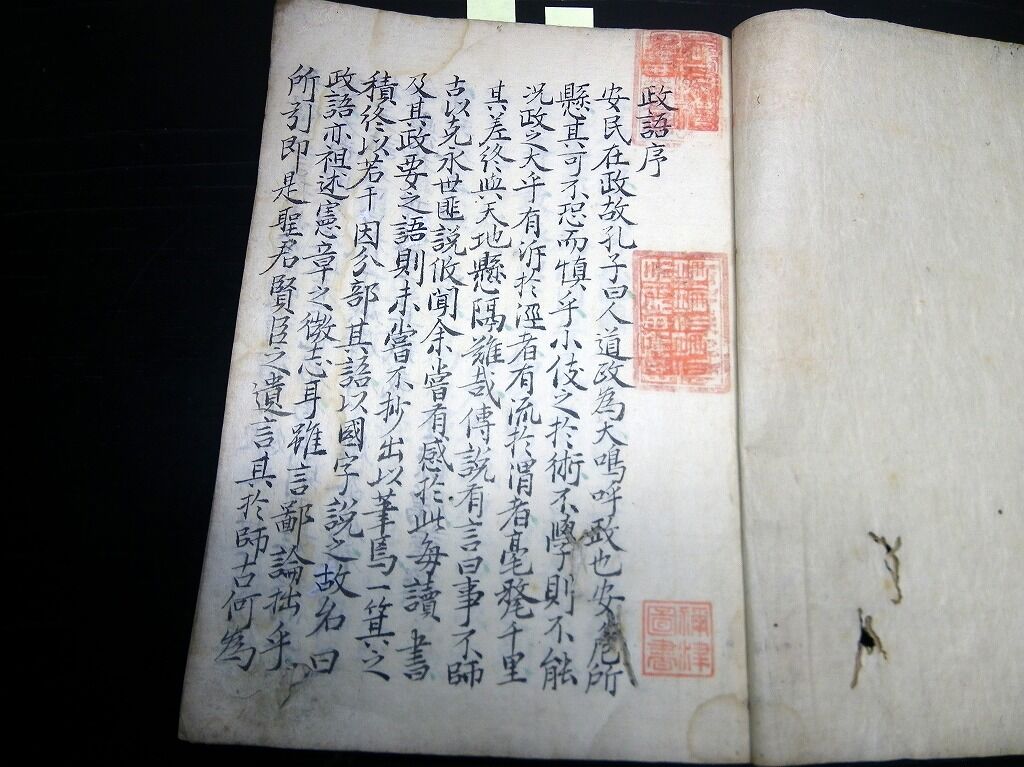 政語序
安民在政故孔子曰人道政為大嗚呼政也安危所
懸其可不忍而慎乎小伎之於術不學則不能
況政之大乎有泝於涇者有流於渭者毫釐千里
其差終與天地懸隔難哉傳說有言曰事不師
古以克永世匪說攸聞余嘗有感於此每讀書
及其政要之語則未嘗不抄出以筆焉一簣之
積終以若干因分部其語以國字說之故名曰
政語亦祖述憲章之微志耳雖言鄙論拙乎
所引即是聖君賢臣之遺言其於師古何為
禰津
圖書